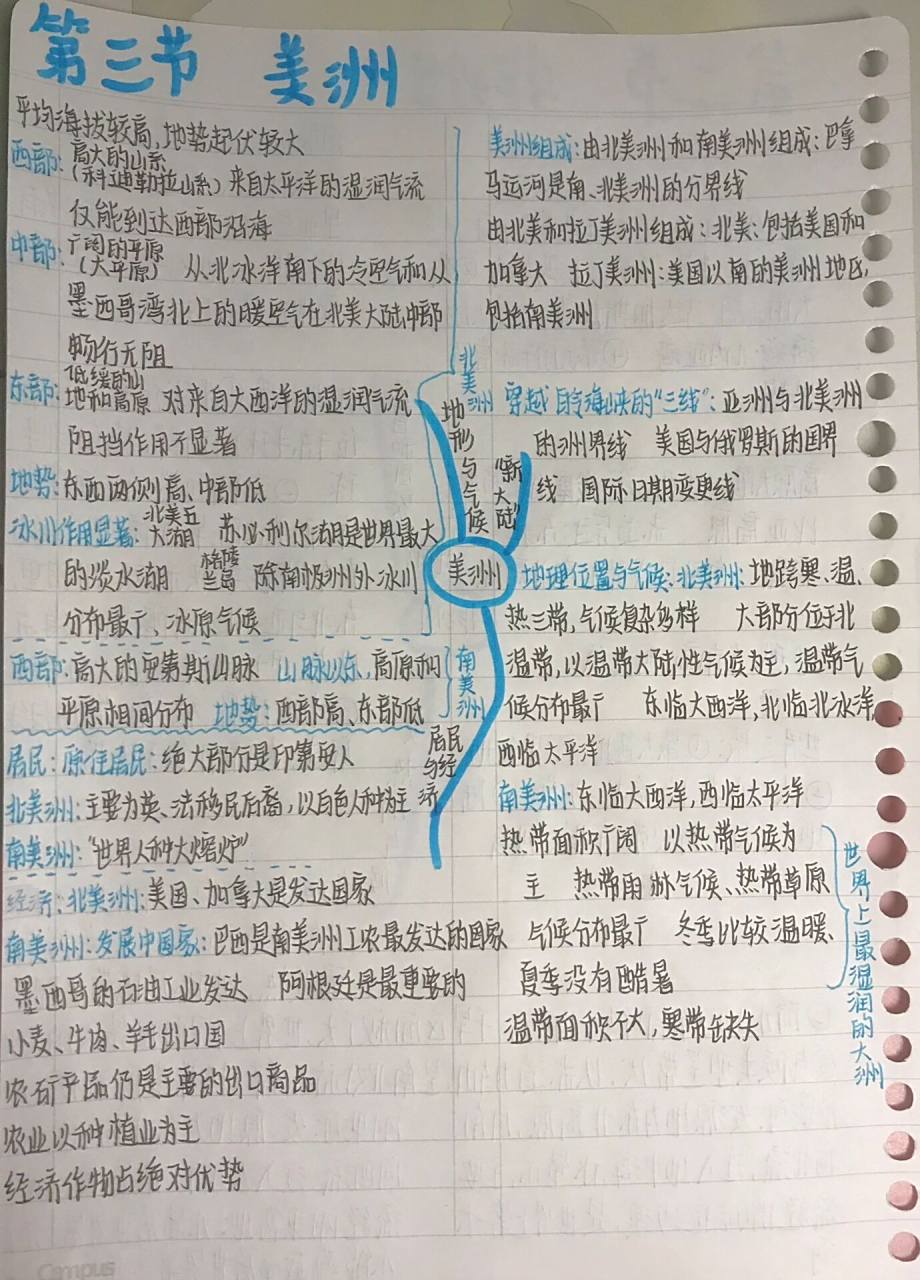 第三节 美洲
平均海拔较高,地势起伏较大
西部:高大的山系
(科迪勒拉山系)来自太平洋的湿润气流
仅能到达西部沿海
中部:广阔的平原
(大平原) 从北冰洋南下的冷空气和从
墨西哥湾北上的暖空气在北美大陆中部
畅行无阻
东部:低缓的山
地和高原 对来自大西洋的湿润气流
阻挡作用不显著
地势:东西两侧高、中部低
冰川作用显著:北美五
大湖 苏必利尔湖是世界最大
的淡水湖 格陵
兰岛 除南极洲外冰川
分布最广、冰原气候
北美洲
西部:高大的安第斯山脉 山脉以东,高原和
平原相间分布 地势:西部高、东部低
南美洲
地形与气候
居民:原住居民:绝大部分是印第安人
北美洲:主要为英、法移民后裔,以白色人种为主
南美洲:“世界人种大熔炉”
经济:北美洲:美国、加拿大是发达国家
南美洲:发展中国家:巴西是南美洲工农最发达的国家
墨西哥的石油工业发达 阿根廷是最重要的
小麦、牛肉、羊毛出口国
农矿产品仍是主要的出口商品
农业以种植业为主
经济作物占绝对优势
居民与经济
美洲
“新大陆”
美洲组成:由北美洲和南美洲组成:巴拿
马运河是南、北美洲的分界线
由北美和拉丁美洲组成:北美:包括美国和
加拿大 拉丁美洲:美国以南的美洲地区,
包括南美洲
穿越白令海峡的“三线”:亚洲与北美洲
的洲界线 美国与俄罗斯的国界
线 国际日期变更线
地理位置与气候:北美洲:地跨寒、温、
热三带,气候复杂多样 大部分位于北
温带,以温带大陆性气候为主,温带气
候分布最广 东临大西洋,北临北冰洋,
西临太平洋
南美洲:东临大西洋,西临太平洋
热带面积广阔 以热带气候为
主 热带雨林气候、热带草原
气候分布最广 冬季比较温暖、
夏季没有酷暑
温带面积不大,寒带缺失
世界上最湿润的大洲
Campus